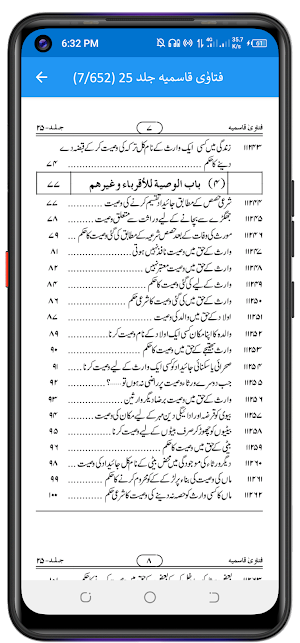 6:32 PM 4G 35.7 K/s 61
فتاوٰی قاسمیہ جلد 25 (7/652)
فتاویٰ قاسمیہ ۷ جلد-۲۵
۱۱۲۴۳ زندگی میں کسی ایک وارث کے نام کل ترکہ کی وصیت کر کے قبضہ دے
دینے کا حکم ۷۴
(۴) باب الوصية للأقرباء وغيرهم ۷۷
۱۱۲۴۴ شرعی حصص کے مطابق جائیداد تقسیم کرنے کی وصیت ۷۷
۱۱۲۴۵ جھگڑے سے بچانے کے لیے وراثت سے متعلق وصیت ۷۸
۱۱۲۴۶ مورث کی وفات کے بعد حصص شرعیہ کے مطابق کی گئی وصیت کا حکم ۷۹
۱۱۲۴۷ وارث کے حق میں وصیت نافذ نہیں ہوتی ۸۱
۱۱۲۴۸ وارث کے حق میں وصیت معتبر نہیں ۸۲
۱۱۲۴۹ وارث کے لیے کی گئی وصیت کا حکم ۸۴
۱۱۲۵۰ وارث کے حق میں کی گئی وصیت کا شرعی حکم ۸۶
۱۱۲۵۱ اولاد کے حق میں والد کی وصیت ۸۷
۱۱۲۵۲ والدہ کا اپنا مکان کسی ایک اولاد کے نام وصیت کرنا ۸۹
۱۱۲۵۳ وارث بھتیجے کے حق میں وصیت کا حکم ۹۰
۱۱۲۵۴ صحرائی یا سکنائی جائیداد کو کسی ایک وارث کے لیے وصیت کرنا ۹۱
۱۱۲۵۵ جب دوسرے ورثاء وصیت پر راضی نہ ہوں تو؟ ۹۲
۱۱۲۵۶ وارث کے حق میں وصیت برضاء دیگر وارثین ۹۳
۱۱۲۵۷ بیوی کو قرضہ اور ادائیگی دین مہر کے لیے مکان کی وصیت ۹۴
۱۱۲۵۸ بیٹیوں کو چھوڑ کر صرف بیٹوں کے لیے وصیت کرنا ۹۵
۱۱۲۵۹ بیٹی کے حق میں وصیت کا حکم ۹۶
۱۱۲۶۰ دیگر ورثاء کی موجودگی میں محض بیٹی کے نام کل جائیداد کی وصیت ۹۸
۱۱۲۶۱ ماں کی وصیت کی بناء پر لڑکے کے کو محروم کرنے کا حکم ۹۹
۱۱۲۶۲ ماں کا کسی وارث کو حصہ نہ دینے کی وصیت کا شرعی حکم ۱۰۰
فتاویٰ قاسمیہ ۸ جلد-۲۵